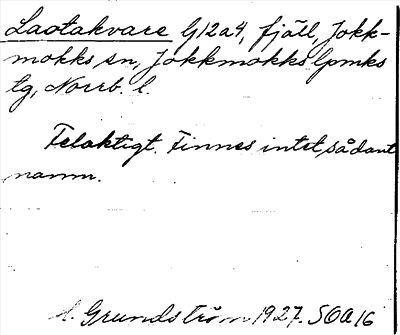 Laotakvare G12a4, fjäll, Jokk-
mokks sn, Jokkmokks lpmks
tg, Norrb. l.
Felaktigt. Finnes intet sådant
namn.
A. Grundström 1927. SOA16